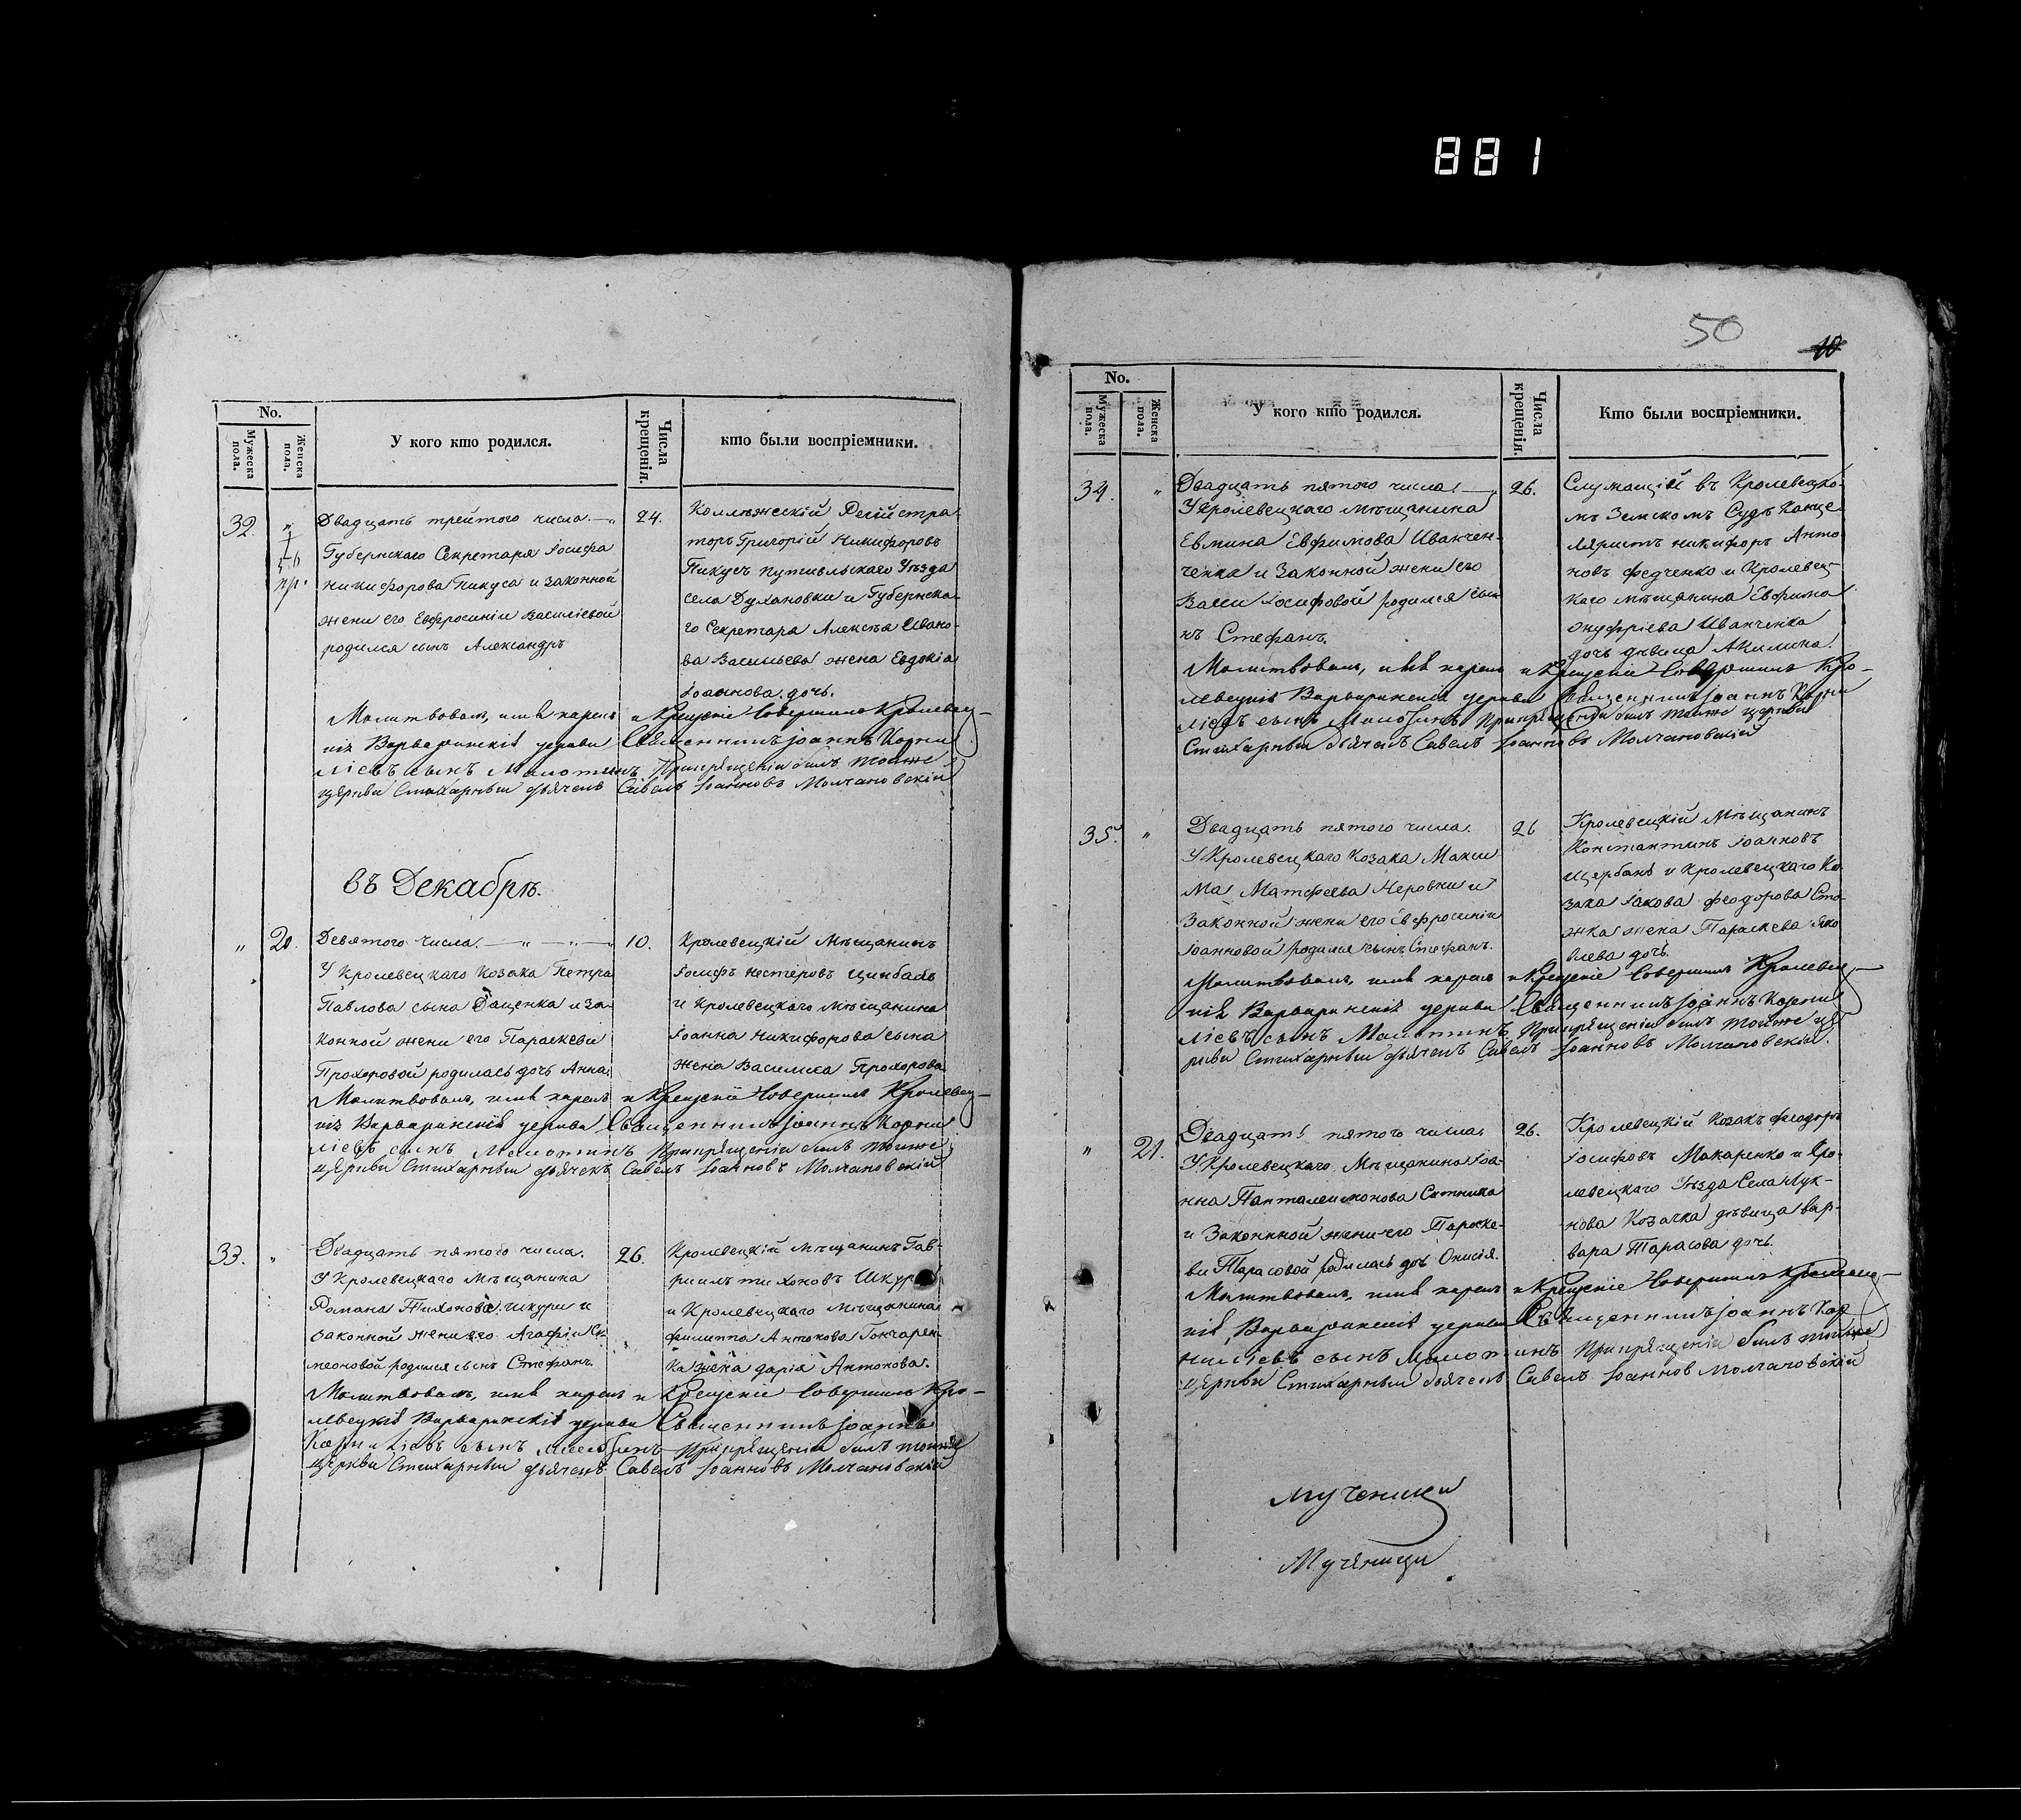 881
No.
Мужеска пола.
Женска пола.
У кого кто родился.
Числа крещенія.
кто были воспріемники.
32.
"
пр.
Двадцать третього числа.
24.
Губернскаго Секретаря Іосифа
Никифорова Пикуса и законной
жени его Евфросиніи Василіевой
родился сынъ Александръ
Коллѣжескій Регистра
торъ Григорій Никифоровъ
Пикусъ путивльскаго Уѣзда
села Духановки и Губернска
го Секретаря Алексѣя Ивано
ва Васильева жена Евдокіа
Іоаннова дочь.
Молитвовалъ, имя нарекъ и Крещеніе Совершилъ Кролевец
кія Варваринскія церкви Священникъ Іоаннъ Корни
ліевъ сынъ При крещеніи былъ тоиже
церкви Стихарный дьячекъ Савелъ Іоанновъ Молчановскій
въ Декабрѣ.
"
20.
Девятого числа.
10.
У Кролевецкаго Козака Петра
Павлова сына Даценка и за
конной жени его Параскеви
Прохоровой родилась дочь Анна
Кролевецкій Мѣщанинъ
Іосифъ Нестеровъ Цинбалъ
и Кролевецкаго Мѣщанина
Іоанна Никифорова сына
жена Василиса Прохорова
Молитвовалъ, имя нарекъ и Крещеніе Совершилъ Кролевец
кія Варваринскія церкви Священникъ Іоаннъ Корни
ліевъ сынъ При крещеніи былъ тоиже
церкви Стихарный дьячекъ Савелъ Іоанновъ Молчановскій
33.
"
Двадцать пятого числа.
26.
У Кролевецкаго Мѣщанина
Романа Тихонова Шкури и
законной жени его Агафіи Си
меоновой родился сынъ Стефанъ
Кролевецкій Мѣщанинъ Гав
риилъ тихоновъ Шкура
и Кролевецкаго Мѣщанина
Филиппа Антонова Гончарен
ка жена дарія Антонова.
Молитвовалъ, имя нарекъ и Крещеніе Совершилъ Кро
левецкія Варваринскія церкви Священникъ Іоаннъ
Корниліевъ сынъ При крещеніи былъ тоиже
церкви Стихарный дьячекъ Савелъ Іоанновъ Молчановскій
50
10
No.
Мужеска пола.
Женска пола.
У кого кто родился.
Числа крещенія.
Кто были воспріемники.
34.
"
Двадцать пятого числа.
26.
У Кролевецкаго Мѣщанина
Евфимова Иванчен
ченка и Законной жени его
Іосифовой родился сы
нъ Стефанъ.
Служащій въ Кролевецко
мъ Земскомъ Судѣ Канце
ляристъ никифоръ Анто
новъ Федченко и Кролевец
каго мѣщанина Евфима
Онуфріева Иванченка
дочь дѣвица Акилина.
Молитвовалъ, имя нарекъ и Крещеніе Совершилъ Кро
левецкія Варваринскія церкви Священникъ Іоаннъ Корни
ліевъ сынъ При крещеніи былъ тоиже церкви
Стихарный дьячекъ Савелъ Іоанновъ Молчановскій
35.
"
Двадцать пятого числа.
26
У Кролевецкаго Козака Макси
ма Матфеева Неровни и
Законной жени его Евфросиніи
Іоанновой родился сынъ Стефанъ.
Кролевецкій Мѣщанинъ
Константинъ Іоанновъ
Щербакъ и Кролевецкаго Ко
зака Іакова Феодорова Сто
жка жена Параскева Яко
влева дочь.
Молитвовалъ, имя нарекъ и Крещеніе Совершилъ Кролевец
кія Варваринскія церкви Священникъ Іоаннъ Корни
ліевъ сынъ При крещеніи былъ тоиже це
ркви Стихарный дьячекъ Савелъ Іоанновъ Молчановскій.
"
21.
Двадцать пятого числа.
26.
У Кролевецкаго Мѣщанина Іоа
нна Панталеимонова Ситника
и Законной жени его Параске
ви Тарасовой родилась дочь Онисія.
Кролевецкій Козакъ Феодоръ
Іосифовъ Макаренко и Кро
левецкаго Уѣзда Села Лук
нова Козачка дѣвица Вар
вара Тарасова дочь.
Молитвовалъ, имя нарекъ и Крещеніе Совершилъ Кролевец
кія Варваринскія церкви Священникъ Іоаннъ Кор
ниліевъ сынъ При крещеніи былъ тоиже
церкви Стихарный дьячекъ Савелъ Іоаннов Молчановскій